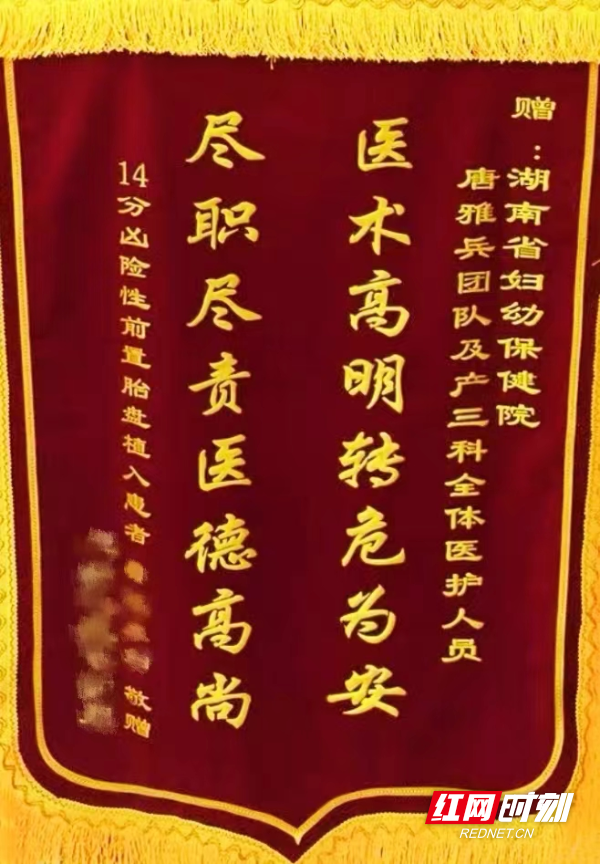 赠：湖南省妇幼保健院
唐雅兵团队及产三科全体医护人员
医术高明转危为安
尽职尽责医德高尚
14分凶险性前置胎盘植入患者
敬赠
红网时刻
REDNET.CN